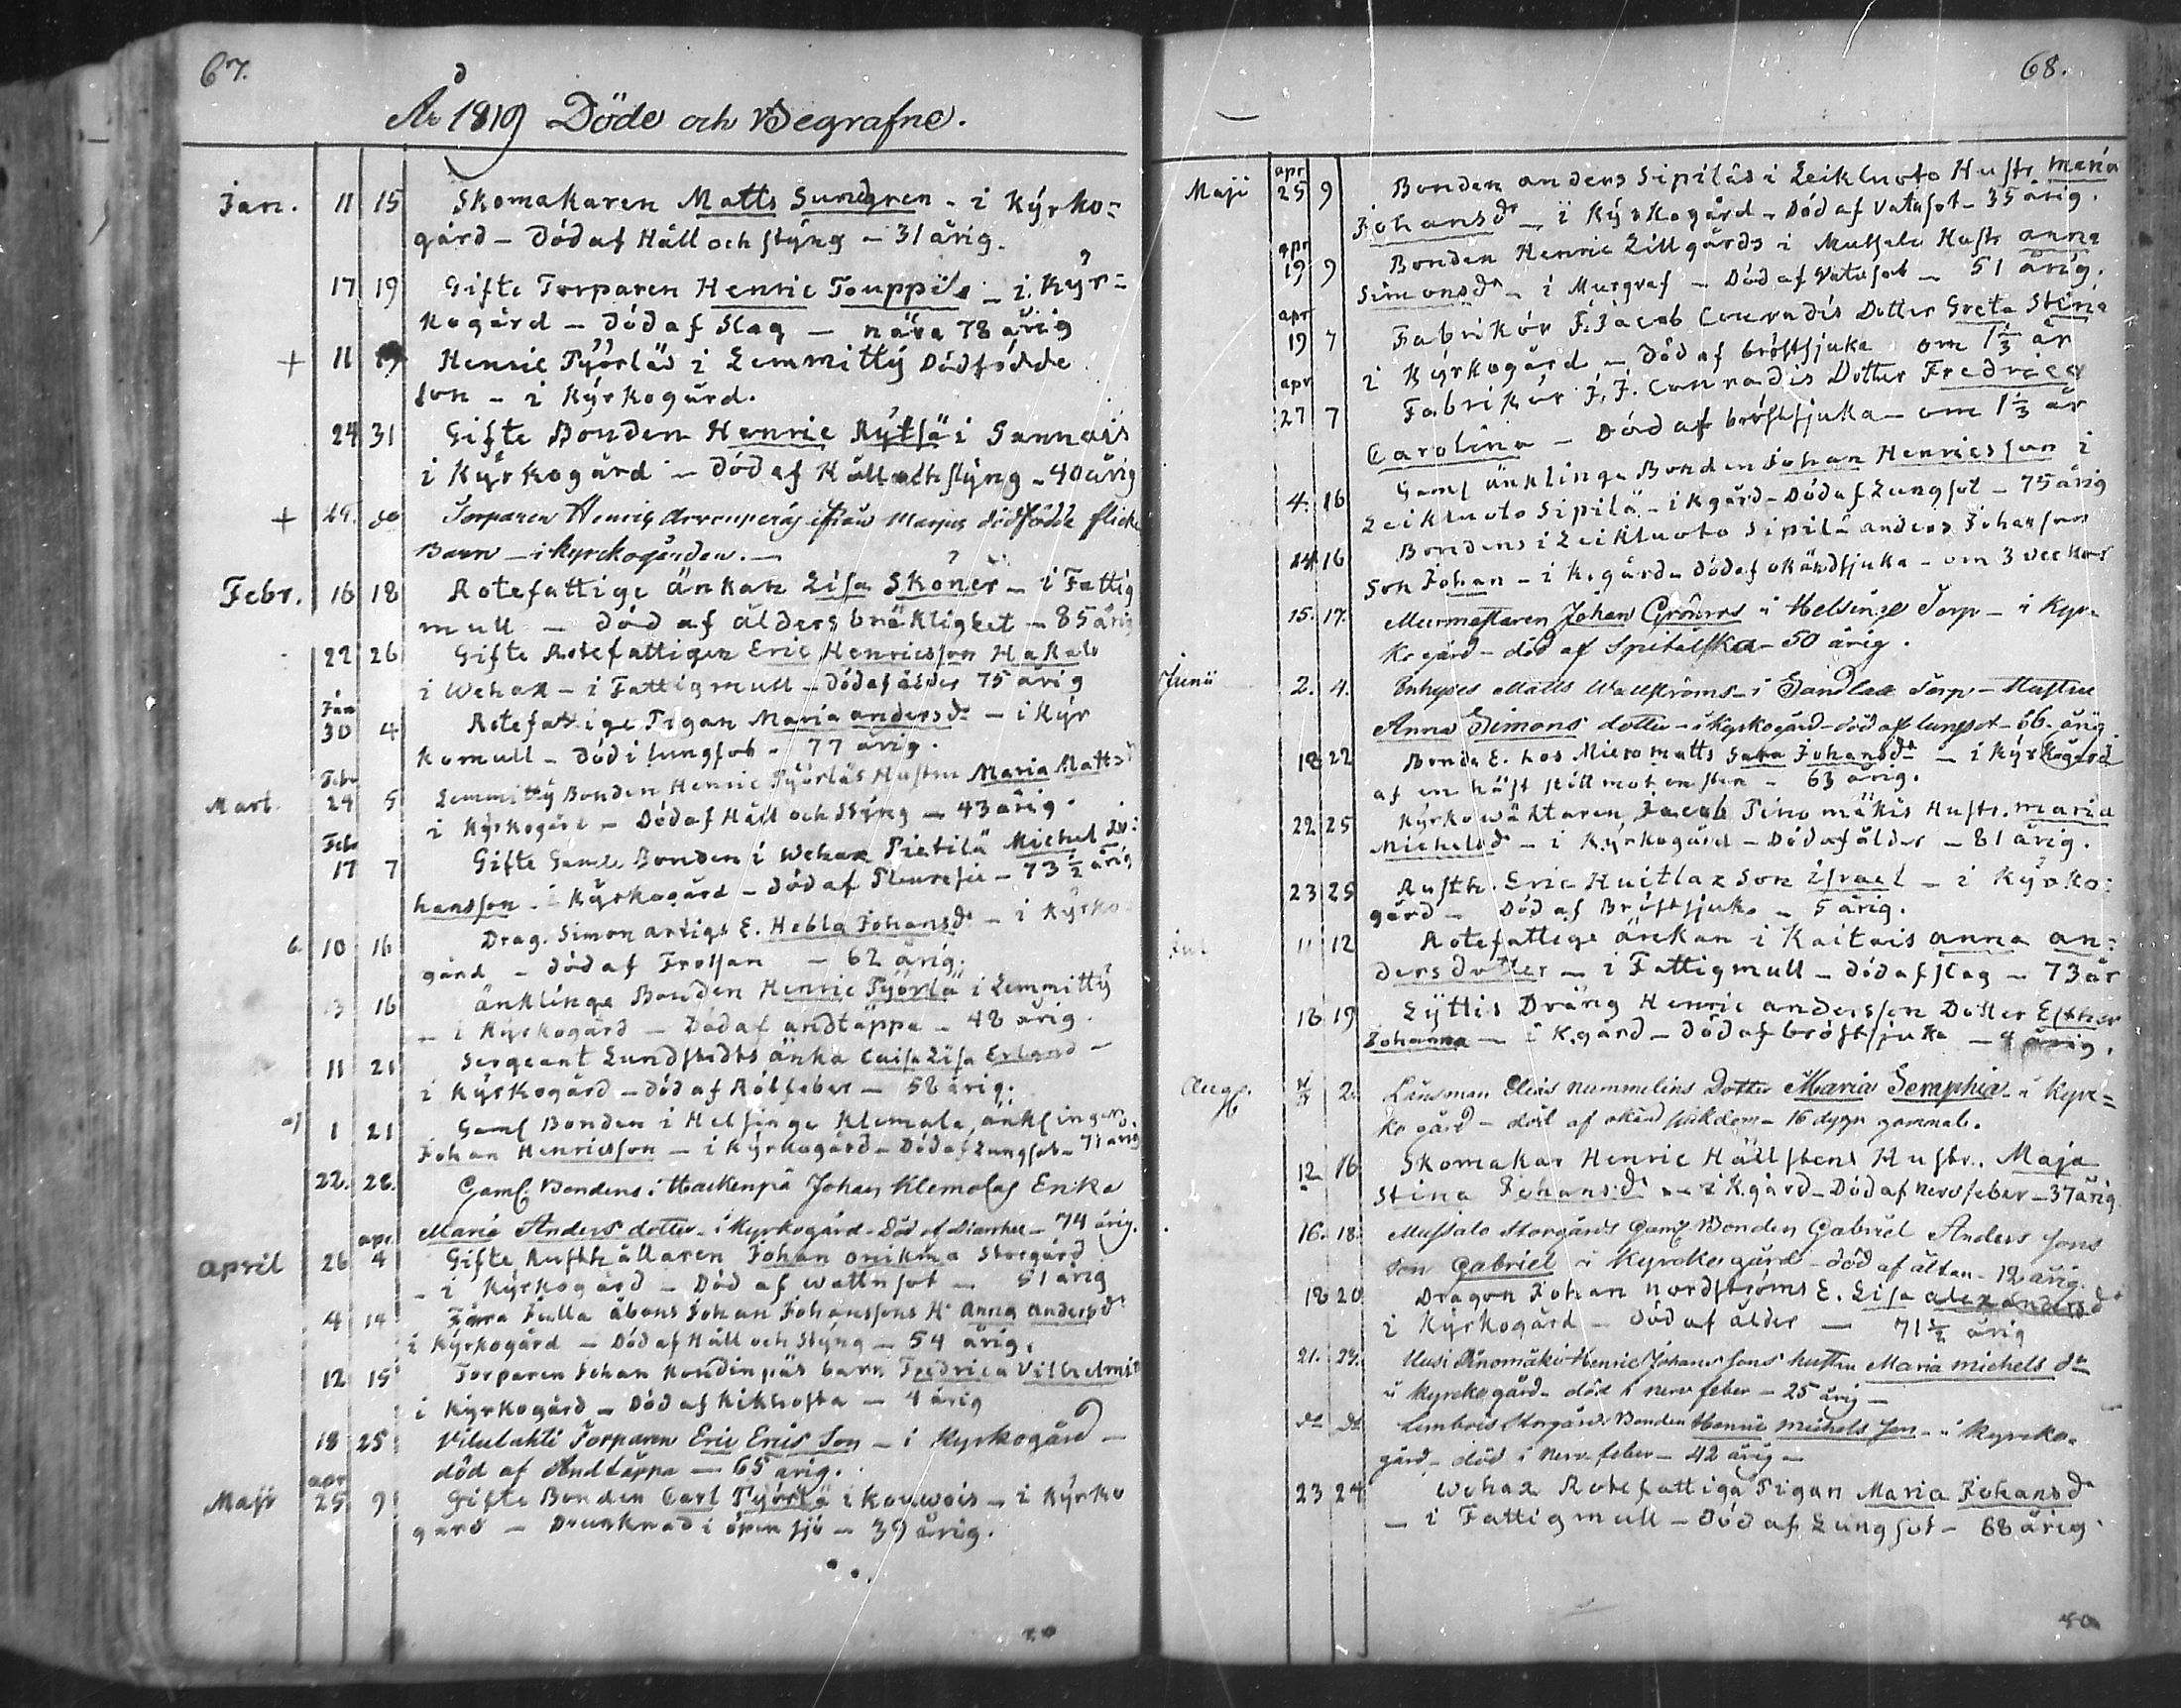 67.
År 1819 Döde och Begrafne.
Jan. 11 15 Skomakaren Matts Sundgren - i Kyrko=
gård - Död af Håll och styng - 31 årig.
17 19 Gifte Torparen Henric Touppi - i Kyr=
kogård - Död af Slag - nära 78 årig
+ 11 19 Henric Pyörläs i Lemmitty Dödfödde
son - i Kyrkogård.
24 31 Gifte Bonden Henric Rytsä i Sannais
i Kyrkogård - Död af Håll och styng - 40 årig
+ 29. do Torparen Henric dödfödde flicke
Barn - i kyrckogården.
Febr. 16 18 Rotefattige änkan Lisa Skonér - i Fattig
mull - död af ålders bräklighet - 85 årig
22 26 Gifte Rotefattigen Eric Henricsson Hakala
i Wehax - i Fattigmull - Död af ålder 75 årig
Jan
30 4 Rotefattige Pigan Maria andersdr - i Kyr
komull - Död i lungsot - 77 årig.
Febr
Mart. 24 5 Lemmitty Bonden Henric Pyörläs Hustru Maria Mattsdr
i Kyrkogård - Död af Håll och Styng - 43 årig.
Febr
17 7 Gifte Gaml. Bonden i Wehax Pietilä Michel Jo=
hansson - i Kyrkogård - död af Pleuresie - 73 1/2 årig
6. 10 16 Drag. Simon artigs E. Hebla Johansdr - i Kyrko
gård - död af Frossan - 62 årig.
13 16 änklinge Bonden Henric Pyörlä i Lemmitty
- i Kyrkogård - Död af andtäppa - 48 årig.
11 21 Sergeant Lundstedts änka Caisa Lisa Erland -
i Kyrkogård - död af Rötfeber - 58 årig.
1 21 Gaml Bonden i Helsinge Klemola, änklingen
Johan Henricsson - i Kyrkogård - Död af Lungsot - 71 årig
22. 28. Gaml. Bondens i Hackenpä Johan Klemolas Enka
Maria Anders dotter - i Kyrkogård - Död af Diarrhee - 74 årig.
apr.
April 26 4 Gifte Rusthållaren Johan onikma Storgård
- i Kyrkogård - Död af wattusot - 51 årig
4 14 Fårra Julla åbons Johan Johanssons Hr Anna andersdr
i Kyrkogård - Död af Håll och Styng - 54 årig.
12 15 Torparen Johan Kondinpäs barn Fredrica Vilhelmin
i Kyrkogård - Död af Kikhosta - 4 årig
18 25 Vilulahti Torparen Eric Erics Son - i Kyrkogård -
död af Andtäppa - 65 årig.
apr
Maji 25 9 Gifte Bonden Carl Pyörlä i Kouwois - i Kyrko
gård - Drunknad i öpen sjö - 39 årig.
68.
apr
Maji 25 9 Bonden anders Sipiläs i Leikluoto Hustr. Maria
Johansdr - i Kyrkogård - Död af Vatusot - 35 årig.
apr
19 9 Bonden Henric Lillgårds i Mussalo Hustr anna
Simonsdr - i Murgraf - Död af Vatusot - 51 årig.
apr
19 7 Fabrikör F. Jacob Conradis Dotter Greta Stina
i Kyrkogård - Död af bröstsjuka om 1 1/3 år
apr
27 7 Fabrikör F. J. Conradis Dotter Fredrica
Carolina - Död af bröstsjuka - om 1 1/3 år
4. 16 Gaml änklinge Bonden Johan Henricsson i
Leikluoto Sipilä - i Kgård - Död af Lungsot - 75 årig
14 16 Bondens i Leikluoto Sipilä anders Johansson
Son Johan - i K.gård - död af okändsjuka - om 3 veckor
15. 17. Murmästaren Johan Grönros i Helsinge Torp - i Kyr
ko gård - död af Spitälska - 50 årig.
Junii 2. 4. Inhyses Matts Wallströms - i Sandlax Torp - Hustru
Anna Simons dotter - i kyrkogård - död af lungsot - 66 årig.
18 22 Bonde E. hos Mieromatts Sara Johansdr - i Kyrkogård
af en häst still mot en sten - 63 årig.
22 25 Kyrkowäktaren Jacob Pinomäkis Hustr. Maria
Michelsdr - i Kyrkogård - Död af ålder - 81 årig.
23 25 Rusth. Eric Huitlax Son Israel - i Kyrko=
gård - Död af Bröstsjuka - 5 årig.
Jul. 11 12 Rotefattige änkan i Kaitais anna an=
dersdotter - i Fattigmull - död af slag - 73 år
18 19 Lyttis Dräng Henric anderssen Dotter Esther
Johanna - i K.gård - död af bröstsjuka - 4 årig.
Aug. 2. Länsman Elias Nummelins Dotter Maria Seraphia - i Kyr=
ko gård - död af okänd sjukdom - 16 dygn gammal.
12 16 Skomakar Henric Hällstens Hustr. Maja
Stina Johansdr - i Kgård - Död af nervfeber - 37 årig
16. 18. Mussalo Storgårds Gaml Bonden Gabriel Anders sons
son Gabriel i Kyrckogård - död af ältan - 12 årig.
18 20 Dragon Johan nordströms E. Lisa alexandersdr
i Kyrkogård - död af ålder - 71 1/2 årig
21. 24. Uusi Pinomäki Henric Johans sons hustru Maria michels dr
i kyrckogård - död i nerv feber - 25 årig -
do do Limbris Storgårds Bonden Henric Michels Son - i kyrcko-
gård - död i nerv feber - 42 årig -
23 24 Wehax Rotefattiga Pigan Maria Johansdr
- i Fattigmull - död af Lungsot - 68 årig.